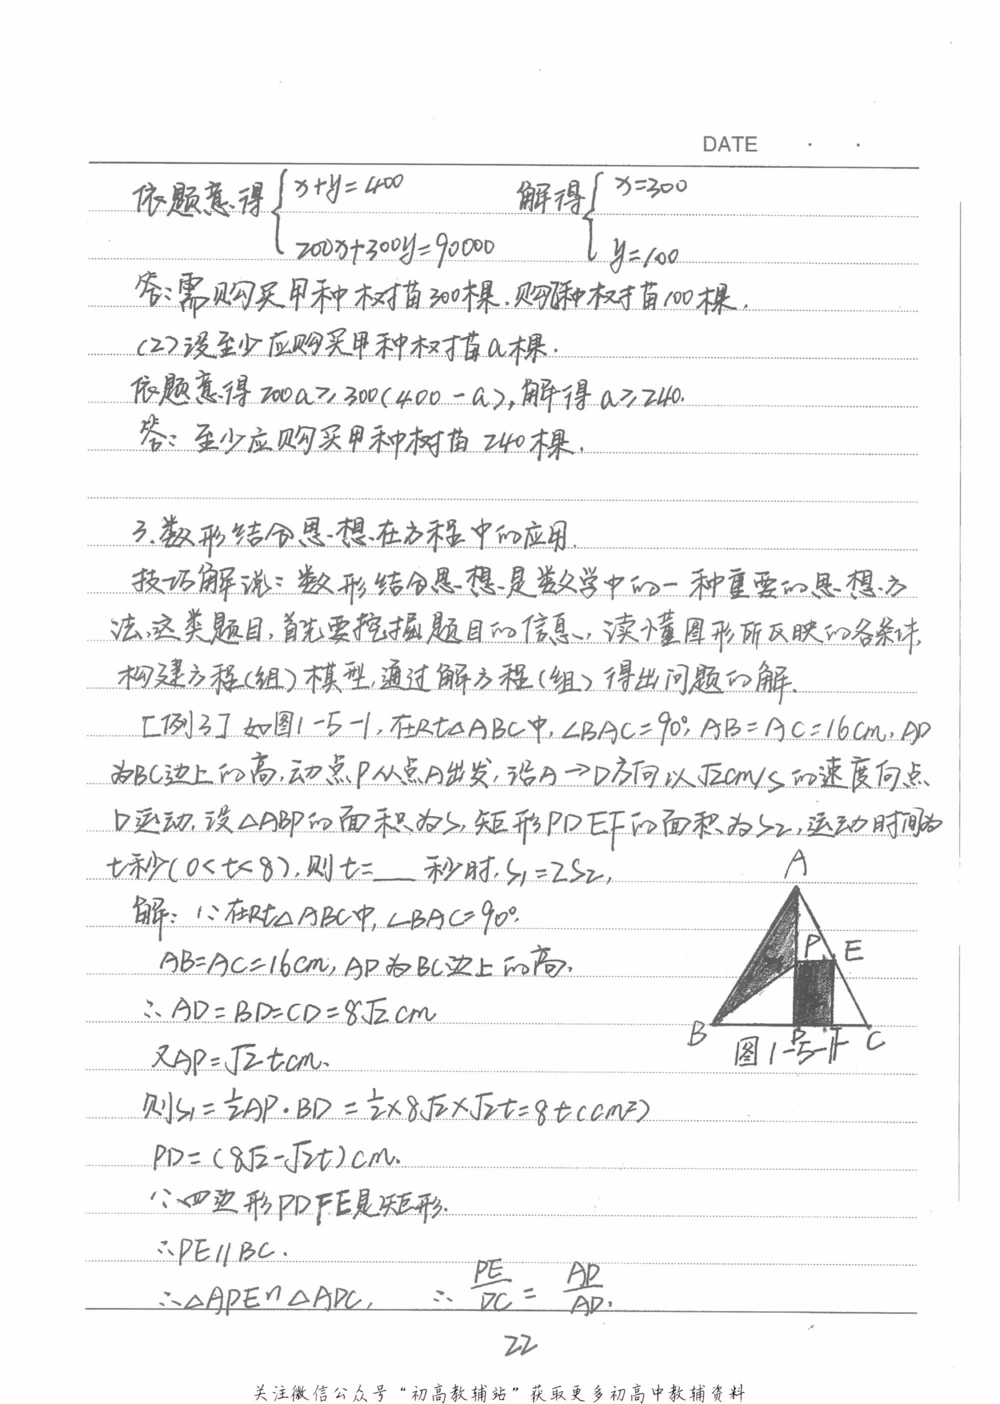 DATE · ·
依题意得{x+y=400 解得{x=300
200x+300y=90000 y=100
答:需购买甲种树苗300棵.购乙种树苗100棵.
(2)设至少应购买甲种树苗a棵.
依题意得200a≥300(400-a),解得a≥240.
答:至少应购买甲种树苗240棵.
3.数形结合思想在方程中的应用.
技巧解说:数形结合思想是数学中的一种重要的思想方
法,这类题目,首先要挖掘题目的信息,读懂图形所反映的各条件,
构建方程(组)模型,通过解方程(组)得出问题的解.
[例3]如图1-5-1,在Rt△ABC中,∠BAC=90°,AB=AC=16cm,AD
为BC边上的高,动点P从点A出发,沿A→D方向以√2cm/s的速度向点
D运动.设△ABP的面积为S₁,矩形PDEF的面积为S₂,运动时间为
t秒(0<t<8),则t=___秒时,S₁=2S₂,
A
解:∵在Rt△ABC中,∠BAC=90°.
P E
AB=AC=16cm,AD为BC边上的高.
∴AD=BD=CD=8√2cm
B D F C
图1-5-1
又AP=√2tcm.
则S₁=½AP·BD=½×8√2×√2t=8t(cm²)
PD=(8√2-√2t)cm.
∵四边形PDFE是矩形.
∴PE//BC.
∴△APE∽△ADC, ∴PE/DC=AP/AD.
22
关注微信公众号“初高教辅站”获取更多初高中教辅资料